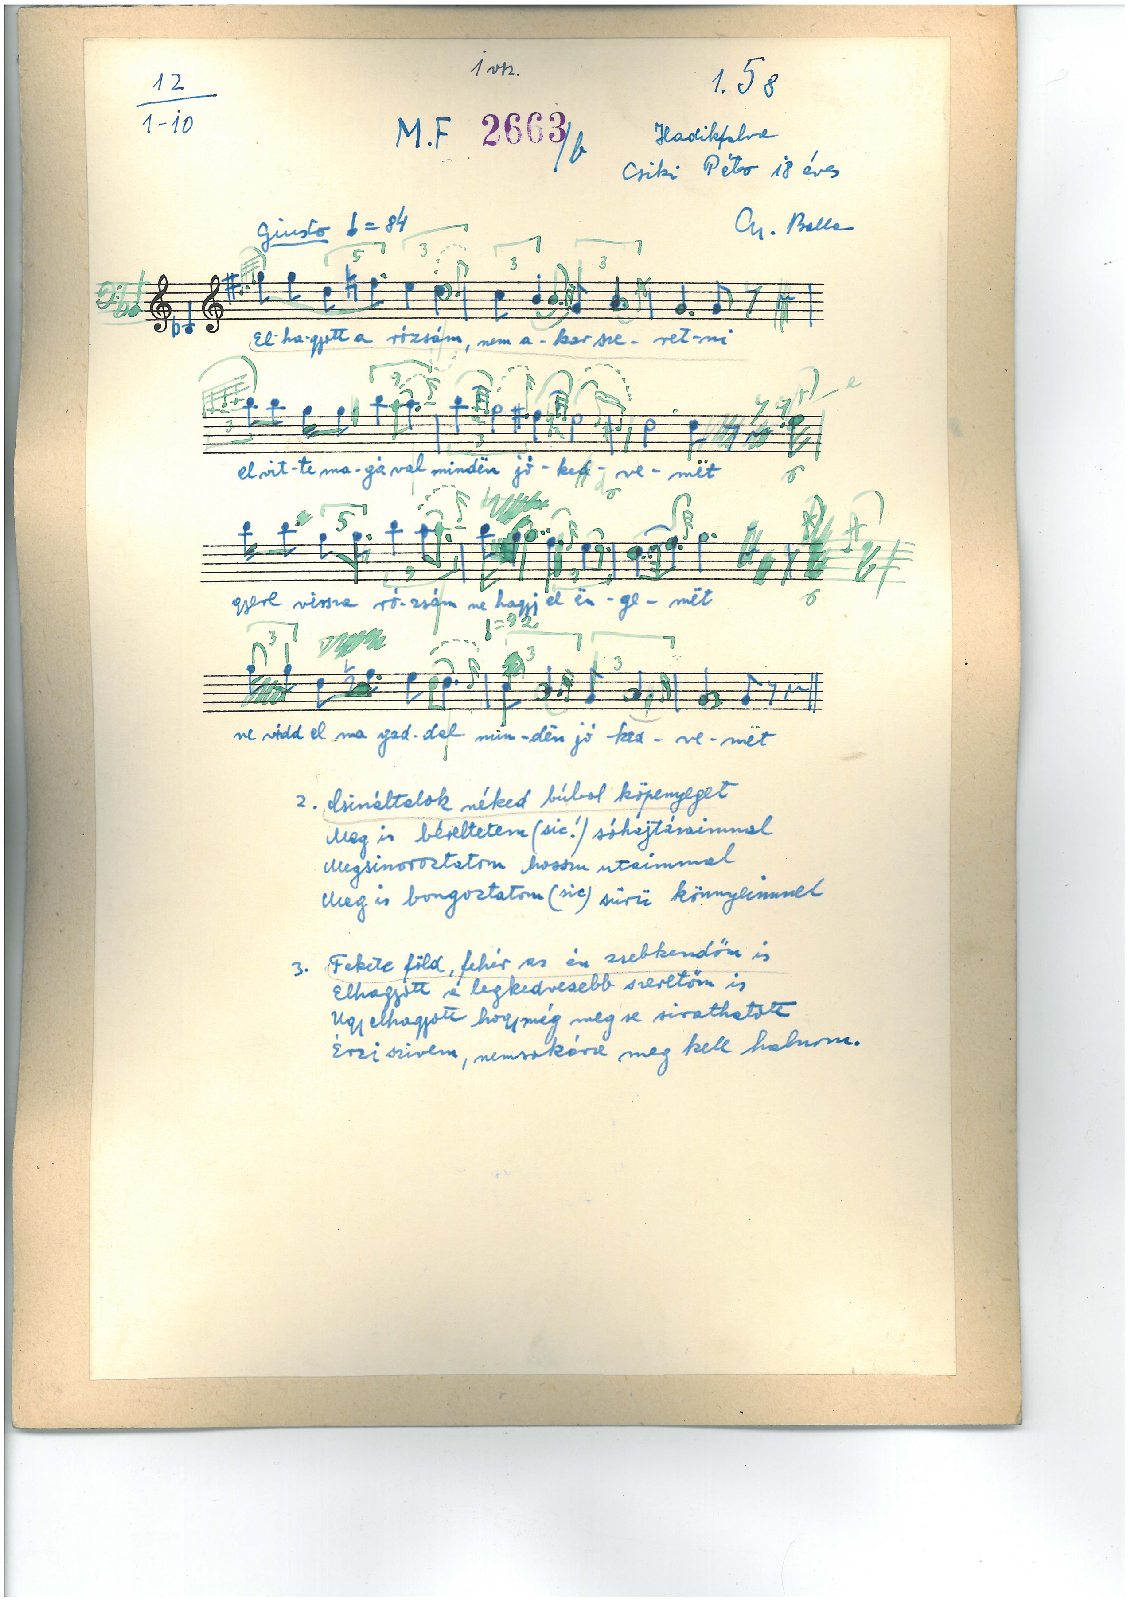 1 vh.
12
1-10
1. 58
M.F 2663/b
Hadikfalva
Csiki Péter 18 éves
Gy. Balla
Giusto = 84
5 3 3 3
El-ha-gyott a rózsám, nem a-kar sze-ret-ni
3
el vit-te ma-gával mindën jó-ked-ve-mët
5
gyere vissza ró-zsám ne hagyj el ën-ge-mët
= 92
3 3 3
ne vidd el ma gad-dal min-dën jó ked-ve-mët
2. Csináltatok néked búbol köpenyeget
Meg is béreltetem (sic!) sóhajtásaimmal
Megsinoroztatom hosszu utaimmal
Meg is bongoztatom (sic) sürü könnyeimmel
3. Fekete föld, fehér az én zsebkendőm is
Elhagyott a legkedvesebb szeretőm is
Ugy elhagyott hogy még meg se sirathatott
Érzi szivem, nemsokára meg kell halnom.